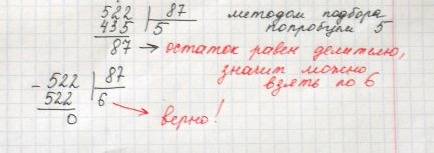 522 | 87 методом подбора
435 | 5 попробуем 5
87 → остаток равен делителю,
значит можно
взять по 6
- 522 | 87
522 | 6 → верно!
0